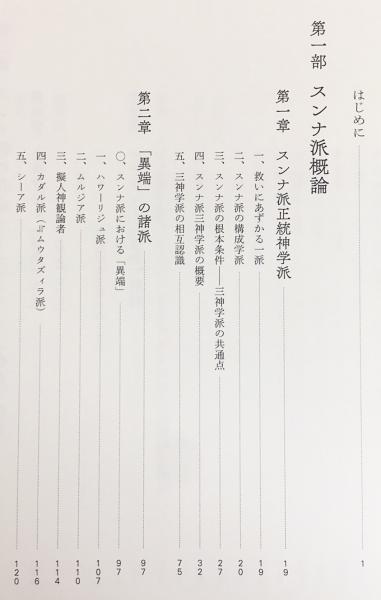 はじめに 1
第一部 スンナ派概論
第一章 スンナ派正統神学派 19
一、救いにあずかる一派 19
二、スンナ派の構成学派 20
三、スンナ派の根本条件――三神学派の共通点 27
四、スンナ派三神学派の概要 32
五、三神学派の相互認識 75
第二章 「異端」の諸派 97
〇、スンナ派における「異端」 97
一、ハワーリジュ派 107
二、ムルジア派 110
三、擬人神観論者 114
四、カダル派（≒ムウタズィラ派） 116
五、シーア派 120